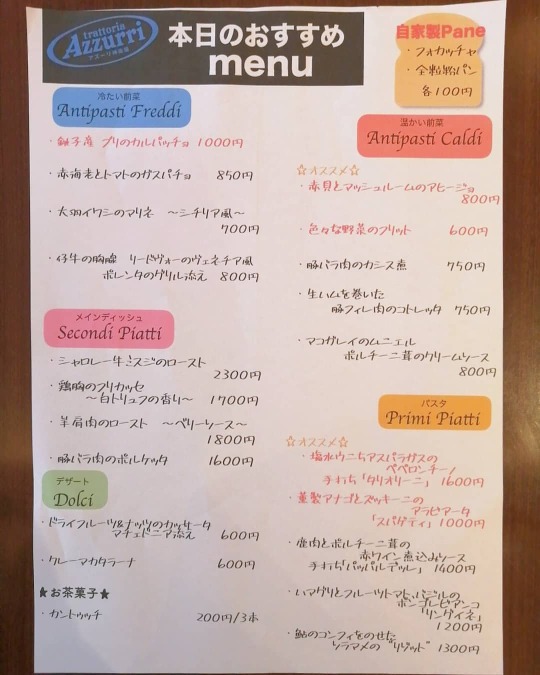 trattoria
Azzurri
アズーリ神楽坂
本日のおすすめ
menu
自家製Pane
・フォカッチャ
・全粒粉パン
各100円
冷たい前菜
Antipasti Freddi
・銚子産 ブリのカルパッチョ 1000円
・赤海老とトマトのガスパチョ 850円
・大羽イワシのマリネ ～シチリア風～
700円
・仔牛の胸腺 リードヴォーのヴェネチア風
ポレンタのグリル添え 800円
温かい前菜
Antipasti Caldi
☆オススメ☆
・赤貝とマッシュルームのアヒージョ
800円
・色々な野菜のフリット 600円
・豚バラ肉のカシス煮 750円
・生ハムを巻いた
豚フィレ肉のコトレッタ 750円
・マコガレイのムニエル
ポルチーニ茸のクリームソース
800円
メインディッシュ
Secondi Piatti
・シャロレー牛ミスジのロースト
2300円
・鶏胸のフリカッセ
～白トリュフの香り～ 1700円
・羊肩肉のロースト ～ベリーソース～
1800円
・豚バラ肉のポルケッタ 1600円
パスタ
Primi Piatti
☆オススメ☆
・塩水ウニとアスパラガスの
ペペロンチーノ
手打ち「タリオリーニ」 1600円
・薫製アナゴとズッキーニの
アラビアータ
「スパゲティ」 1000円
・鹿肉とポルチーニ茸の
赤ワイン煮込みソース
手打ち「パッパルデッレ」 1400円
・ハマグリとフルーツトマト、バジルの
ボンゴレビアンコ
「リングイネ」
1200円
・鮎のコンフィをのせた
ソラマメの"リゾット" 1300円
デザート
Dolci
・ドライフルーツ&ナッツのカッサータ
マチェドニア添え 600円
・クレーマカタラーナ 600円
★お茶菓子★
・カントゥッチ 200円/3本